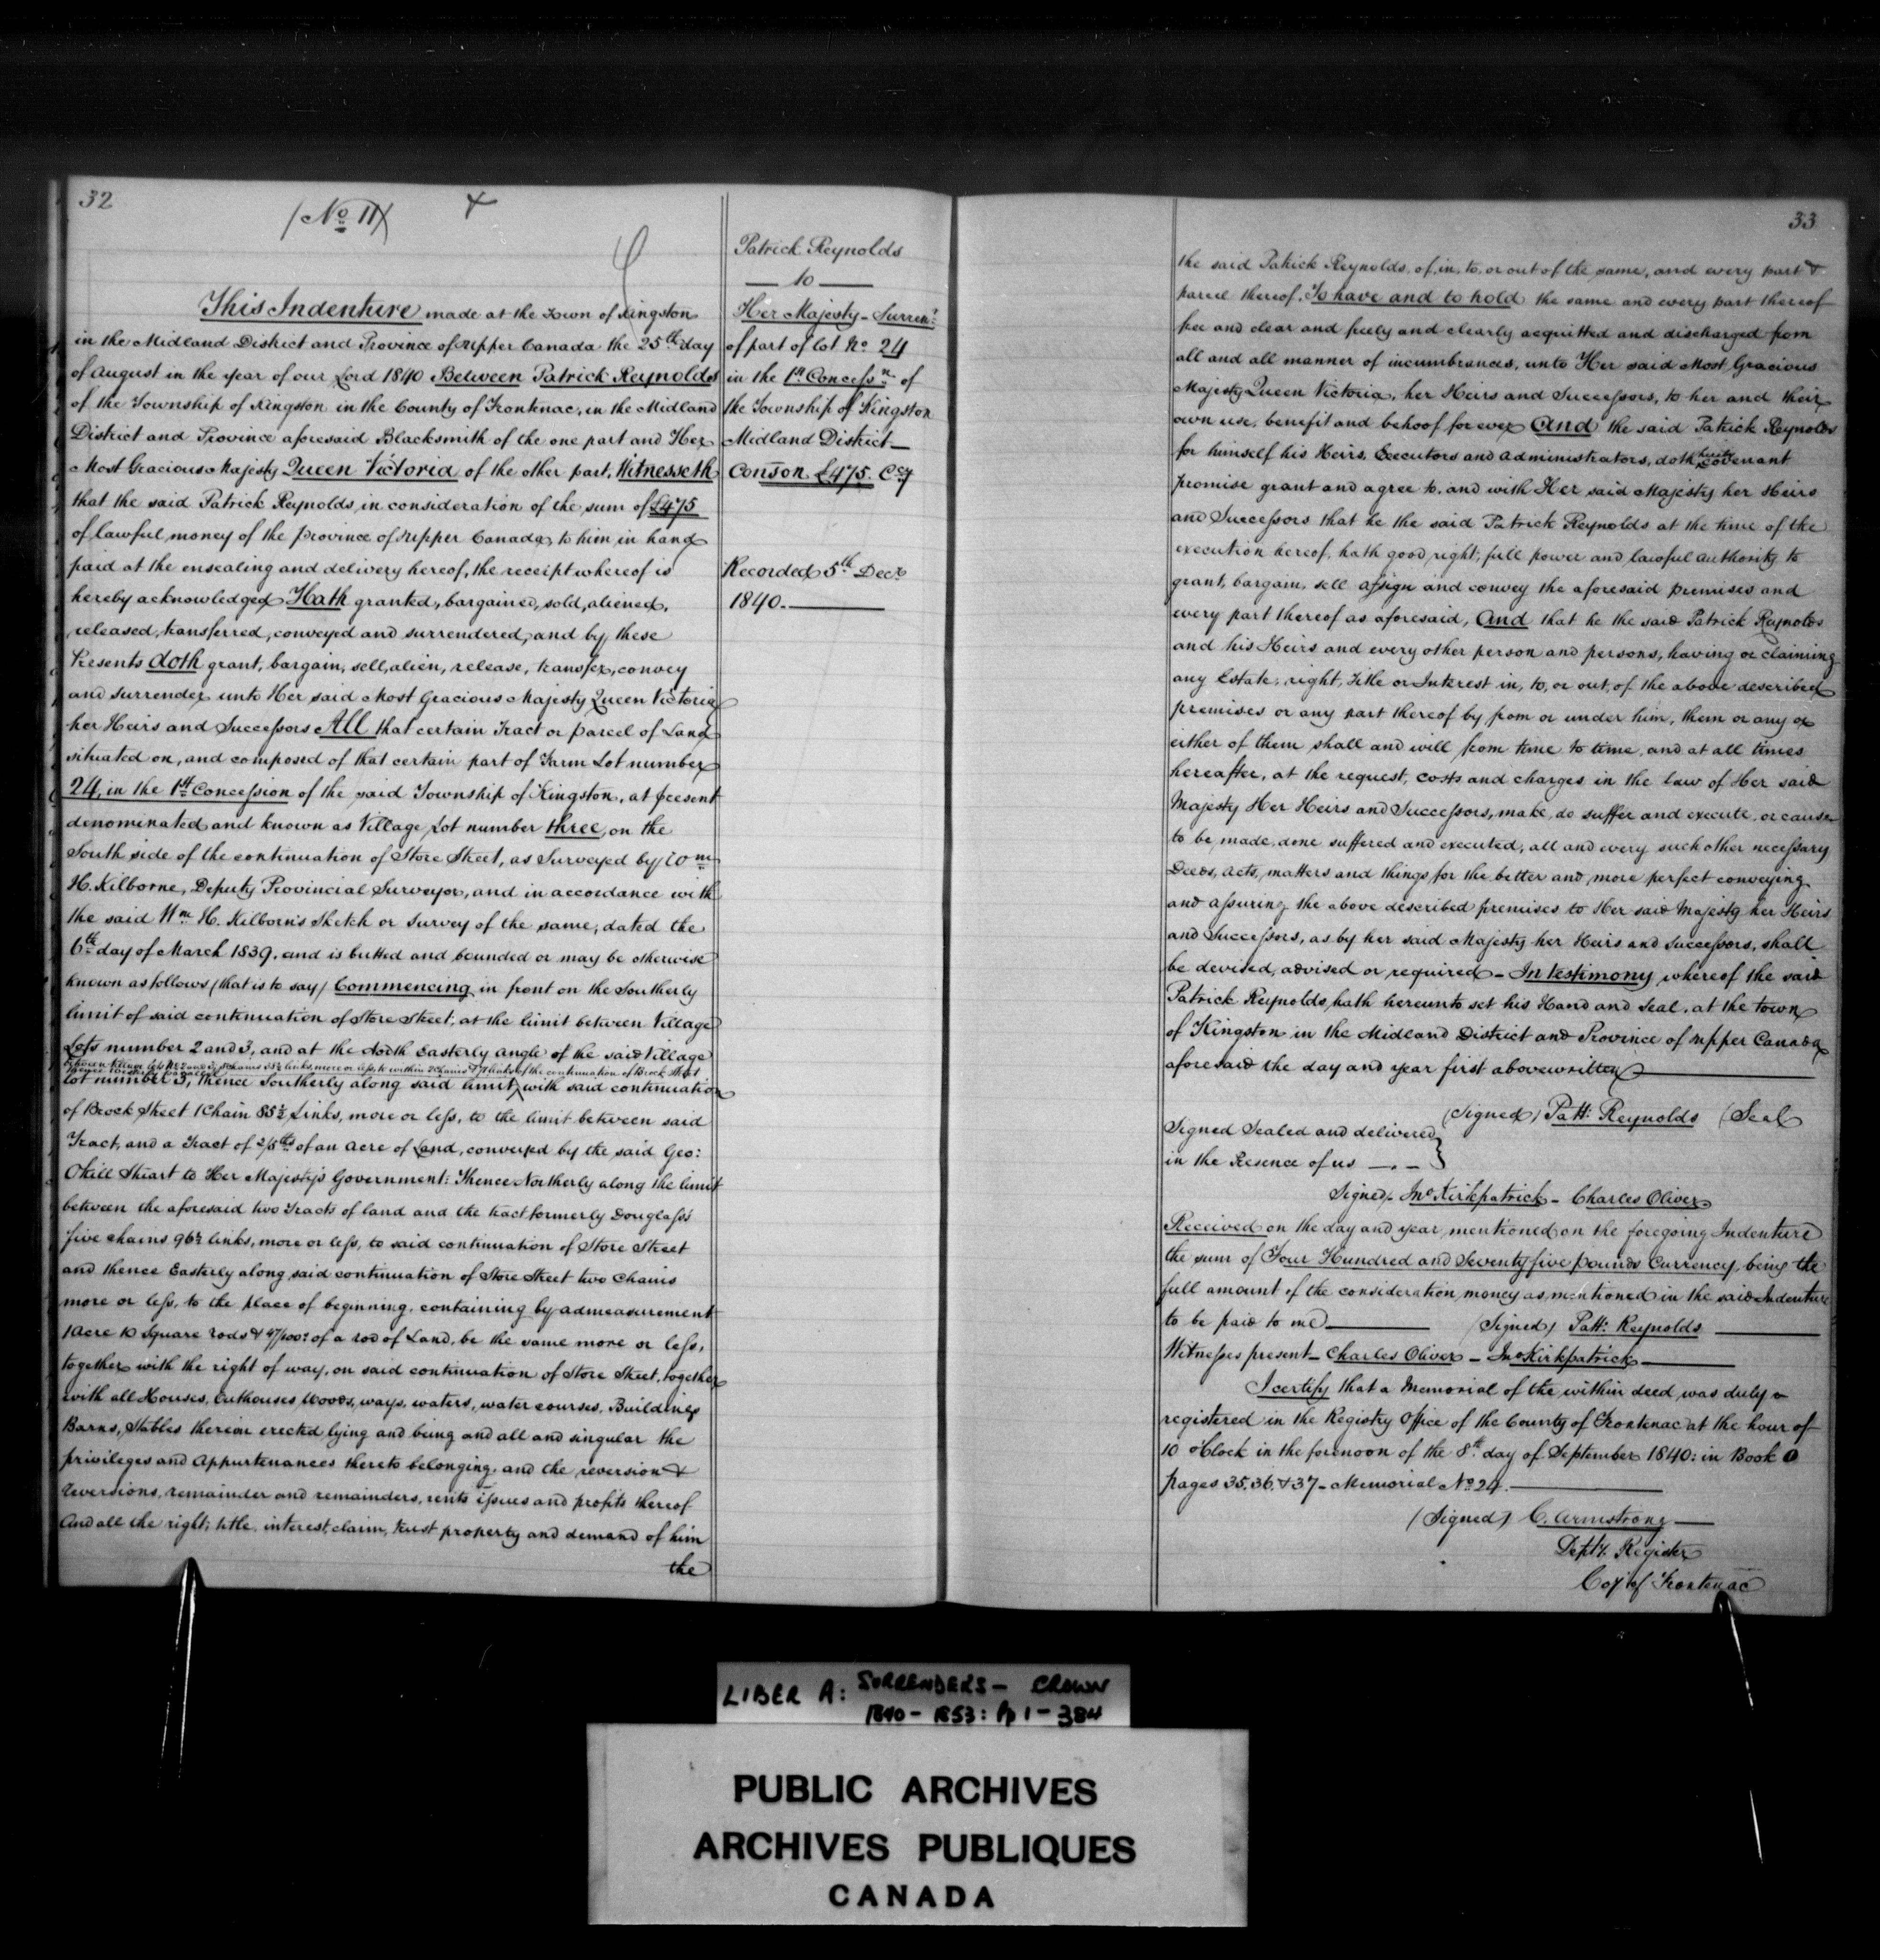 32
(No 11)
Patrick Reynolds
to
Her Majesty - Surrenr
of part of lot No 24
in the 1st Concessn of
the Township of Kingston
Midland District
Conson £475. Ccy
Recorded 5th Decr
1840.
This Indenture made at the Town of Kingston
in the Midland District and Province of Upper Canada the 25th day
of August in the year of our Lord 1840 Between Patrick Reynolds
of the Township of Kingston in the County of Frontenac, in the Midland
District and Province aforesaid Blacksmith of the one part and Her
Most Gracious Majesty Queen Victoria of the other part, Witnesseth
that the said Patrick Reynolds, in consideration of the sum of £475
of lawful money of the Province of Upper Canada, to him in hand
paid at the ensealing and delivery hereof, the receipt whereof is
hereby acknowledged Hath granted, bargained, sold, aliened,
released, transferred, conveyed and surrendered, and by these
Presents doth grant, bargain, sell, alien, release, transfer, convey
and surrender unto Her said Most Gracious Majesty Queen Victoria
her Heirs and Successors All that certain Tract or parcel of Land
situated on, and composed of that certain part of Farm Lot number
24, in the 1st Concession of the said Township of Kingston, at present
denominated and known as Village Lot number three, on the
South side of the continuation of Store Street, as Surveyed by Wm
H. Kilborne, Deputy Provincial Surveyor, and in accordance with
the said Wm H. Kilborn's Sketch or Survey of the same, dated the
6th day of March 1839, and is butted and bounded or may be otherwise
known as follows (that is to say) Commencing in front on the Southerly
limit of said continuation of Store Street, at the limit between Village
Lots number 2 and 3, and at the North Easterly angle of the said Village
between Village lots No 2 and 3, 5 chains 55½ links more or less, to within 2 Chains & 71 links of the continuation of Brock Street
thence Westerly parallel
lot number 3, thence Southerly along said limit with said continuation
of Brock Street 1 Chain 85½ Links, more or less, to the limit between said
Tract, and a Tract of 2/5ths of an acre of Land, conveyed by the said Geo:
Okill Stuart to Her Majesty's Government: Thence Northerly along the limit
between the aforesaid two Tracts of land and the tract formerly Douglass's
five chains 96½ links, more or less, to said continuation of Store Street
and thence Easterly along said continuation of Store Street two Chains
more or less, to the place of beginning, containing by admeasurement
1 Acre 10 Square rods & 47/100s of a rod of Land, be the same more or less,
together with the right of way, on said continuation of Store Street, together
with all Houses, Outhouses Woods, ways, waters, water courses, Buildings
Barns, Stables thereon erected lying and being and all and singular the
privileges and Appurtenances thereto belonging, and the reversion &
reversions, remainder and remainders, rents issues and profits thereof
And all the right, title, interest, claim, trust property and demand of him
the
33
the said Patrick Reynolds, of, in, to, or out of the same, and every part &
parcel thereof. To have and to hold the same and every part thereof
free and clear and freely and clearly acquitted and discharged from
all and all manner of incumbrances, unto Her said Most Gracious
Majesty Queen Victoria, her Heirs and Successors, to her and their
own use, benefit and behoof for ever And the said Patrick Reynolds
for himself his Heirs, Executors and Administrators, doth hereby Covenant
promise grant and agree to, and with Her said Majesty her Heirs
and Successors that he the said Patrick Reynolds at the time of the
execution hereof, hath good right, full power and lawful authority to
grant, bargain, sell assign and convey the aforesaid premises and
every part thereof as aforesaid, And that he the said Patrick Reynolds
and his Heirs and every other person and persons, having or claiming
any Estate, right, Title or Interest in, to, or out, of the above described
premises or any part thereof by from or under him, them or any or
either of them shall and will from time to time, and at all times
hereafter, at the request, costs and charges in the law of Her said
Majesty Her Heirs and Successors, make, do suffer and execute, or cause
to be made, done suffered and executed, all and every such other necessary
Deeds, acts, matters and things, for the better and more perfect conveying
and assuring the above described premises to Her said Majesty her Heirs
and Successors, as by her said Majesty her Heirs and Successors, shall
be devised, advised or required - In testimony whereof the said
Patrick Reynolds, hath hereunto set his Hand and Seal, at the town
of Kingston in the Midland District and Province of Upper Canada
aforesaid the day and year first above written
(Signed) Patt: Reynolds (Seal
Signed Sealed and delivered
in the Presence of us
Signed, Jno Kirkpatrick - Charles Oliver
Received on the day and year, mentioned on the foregoing Indenture
the sum of Four Hundred and Seventy five pounds Currency, being the
full amount of the consideration, money as mentioned in the said Indenture
to be paid to me (Signed) Patt: Reynolds
Witnesses present - Charles Oliver - Jno Kirkpatrick
I certify that a Memorial of the within deed, was duly
registered in the Registry Office of the County of Frontenac at the hour of
10 o'Clock in the forenoon of the 8th day of September 1840: in Book
pages 35, 36, & 37 - Memorial No 24.
(Signed) C. Armstrong
Depty. Register
Coy of Frontenac
LIBER A: SURRENDERS - CROWN
1840 - 1853: Pp 1 - 384
PUBLIC ARCHIVES
ARCHIVES PUBLIQUES
CANADA